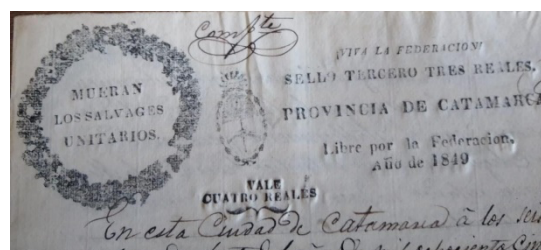 Compte
MUERAN
LOS SALVAGES
UNITARIOS.
¡VIVA LA FEDERACION!
SELLO TERCERO TRES REALES.
PROVINCIA DE CATAMARCA
Libre por la Federacion,
Año de 1849
VALE
CUATRO REALES
En esta Ciudad de Catamarca à los seis